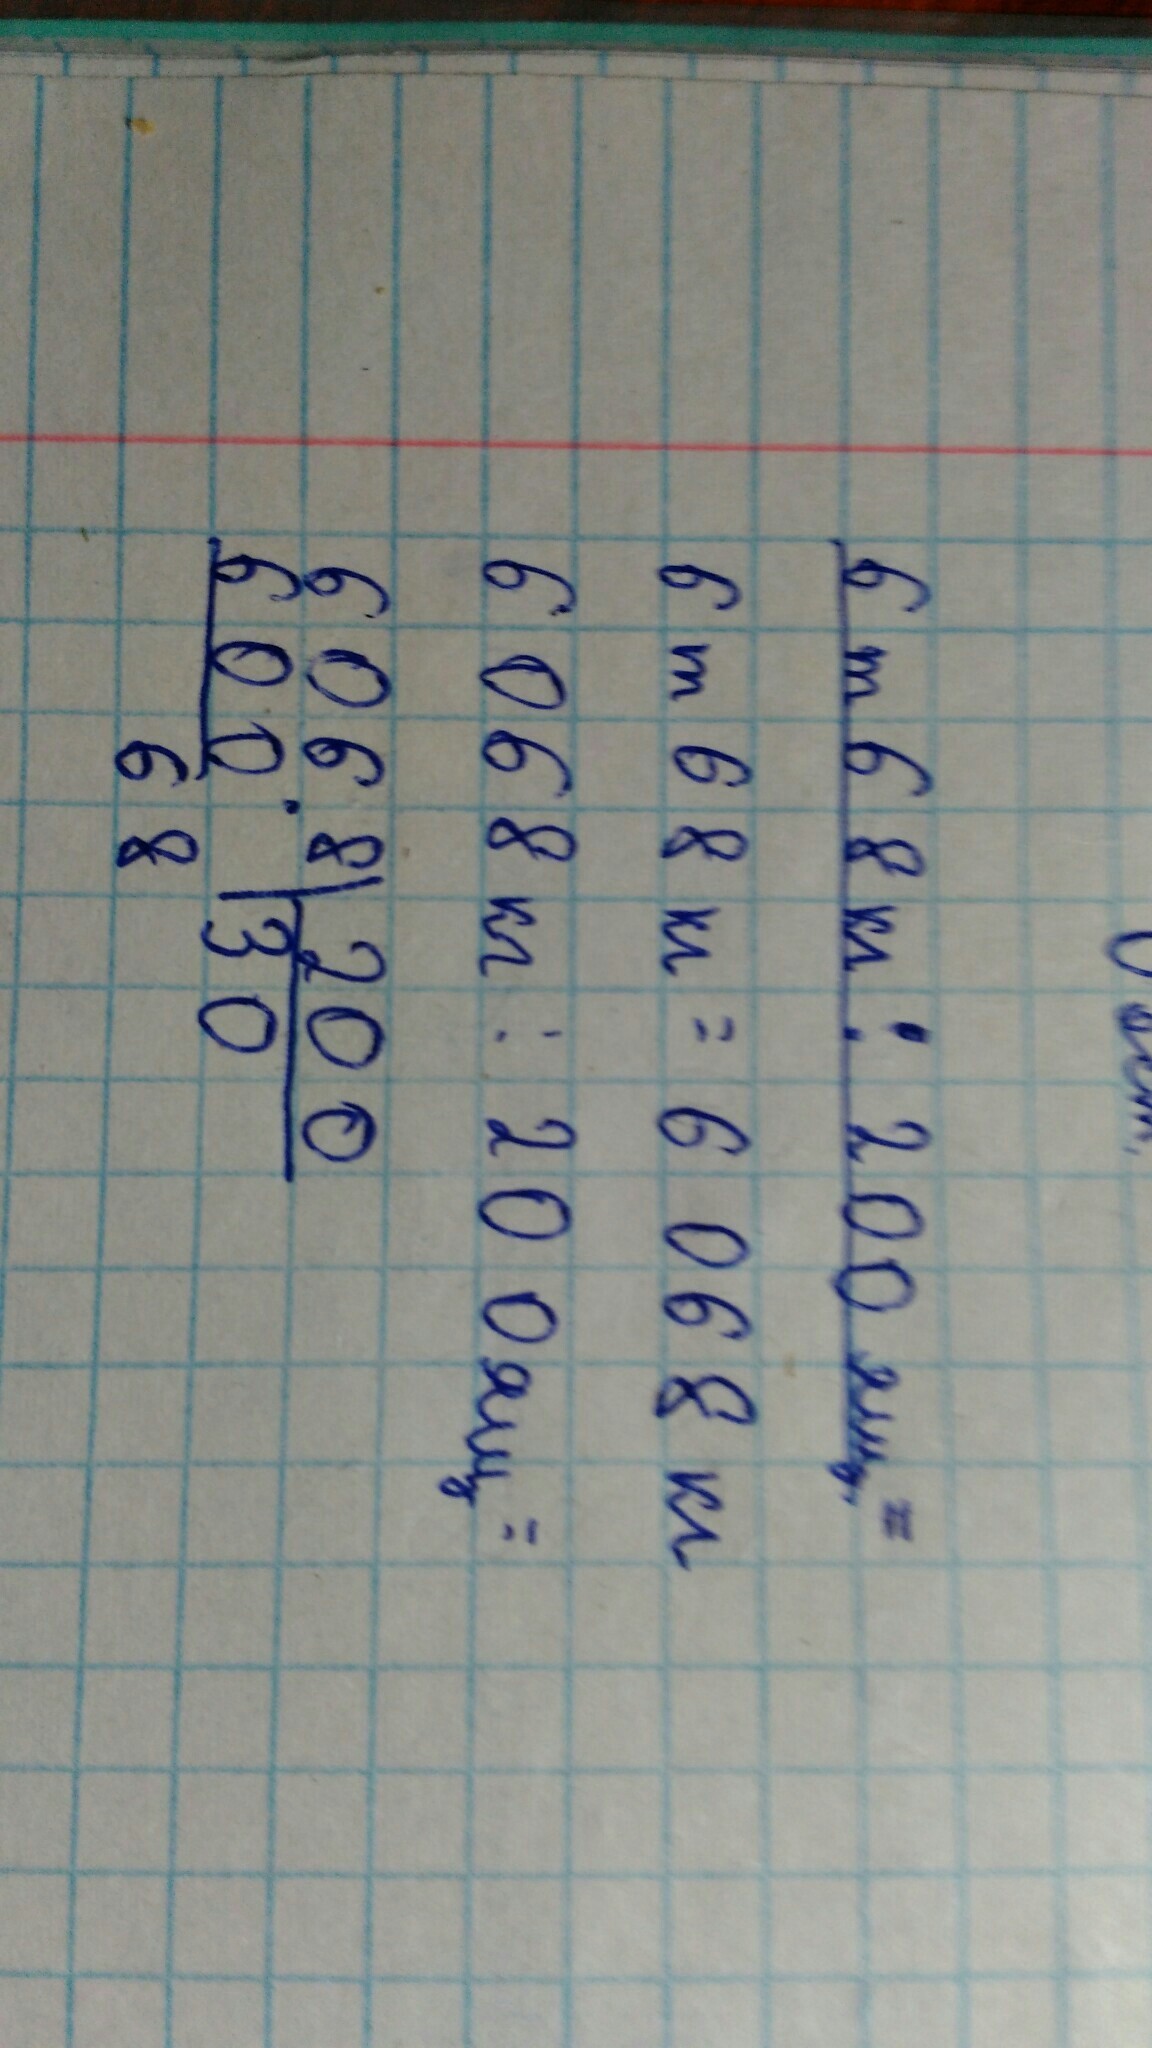 6 т 68 кг : 200 ящ. =
6 т 68 кг = 6 068 кг
6068 кг : 200 ящ =
6068 200
600 30
68